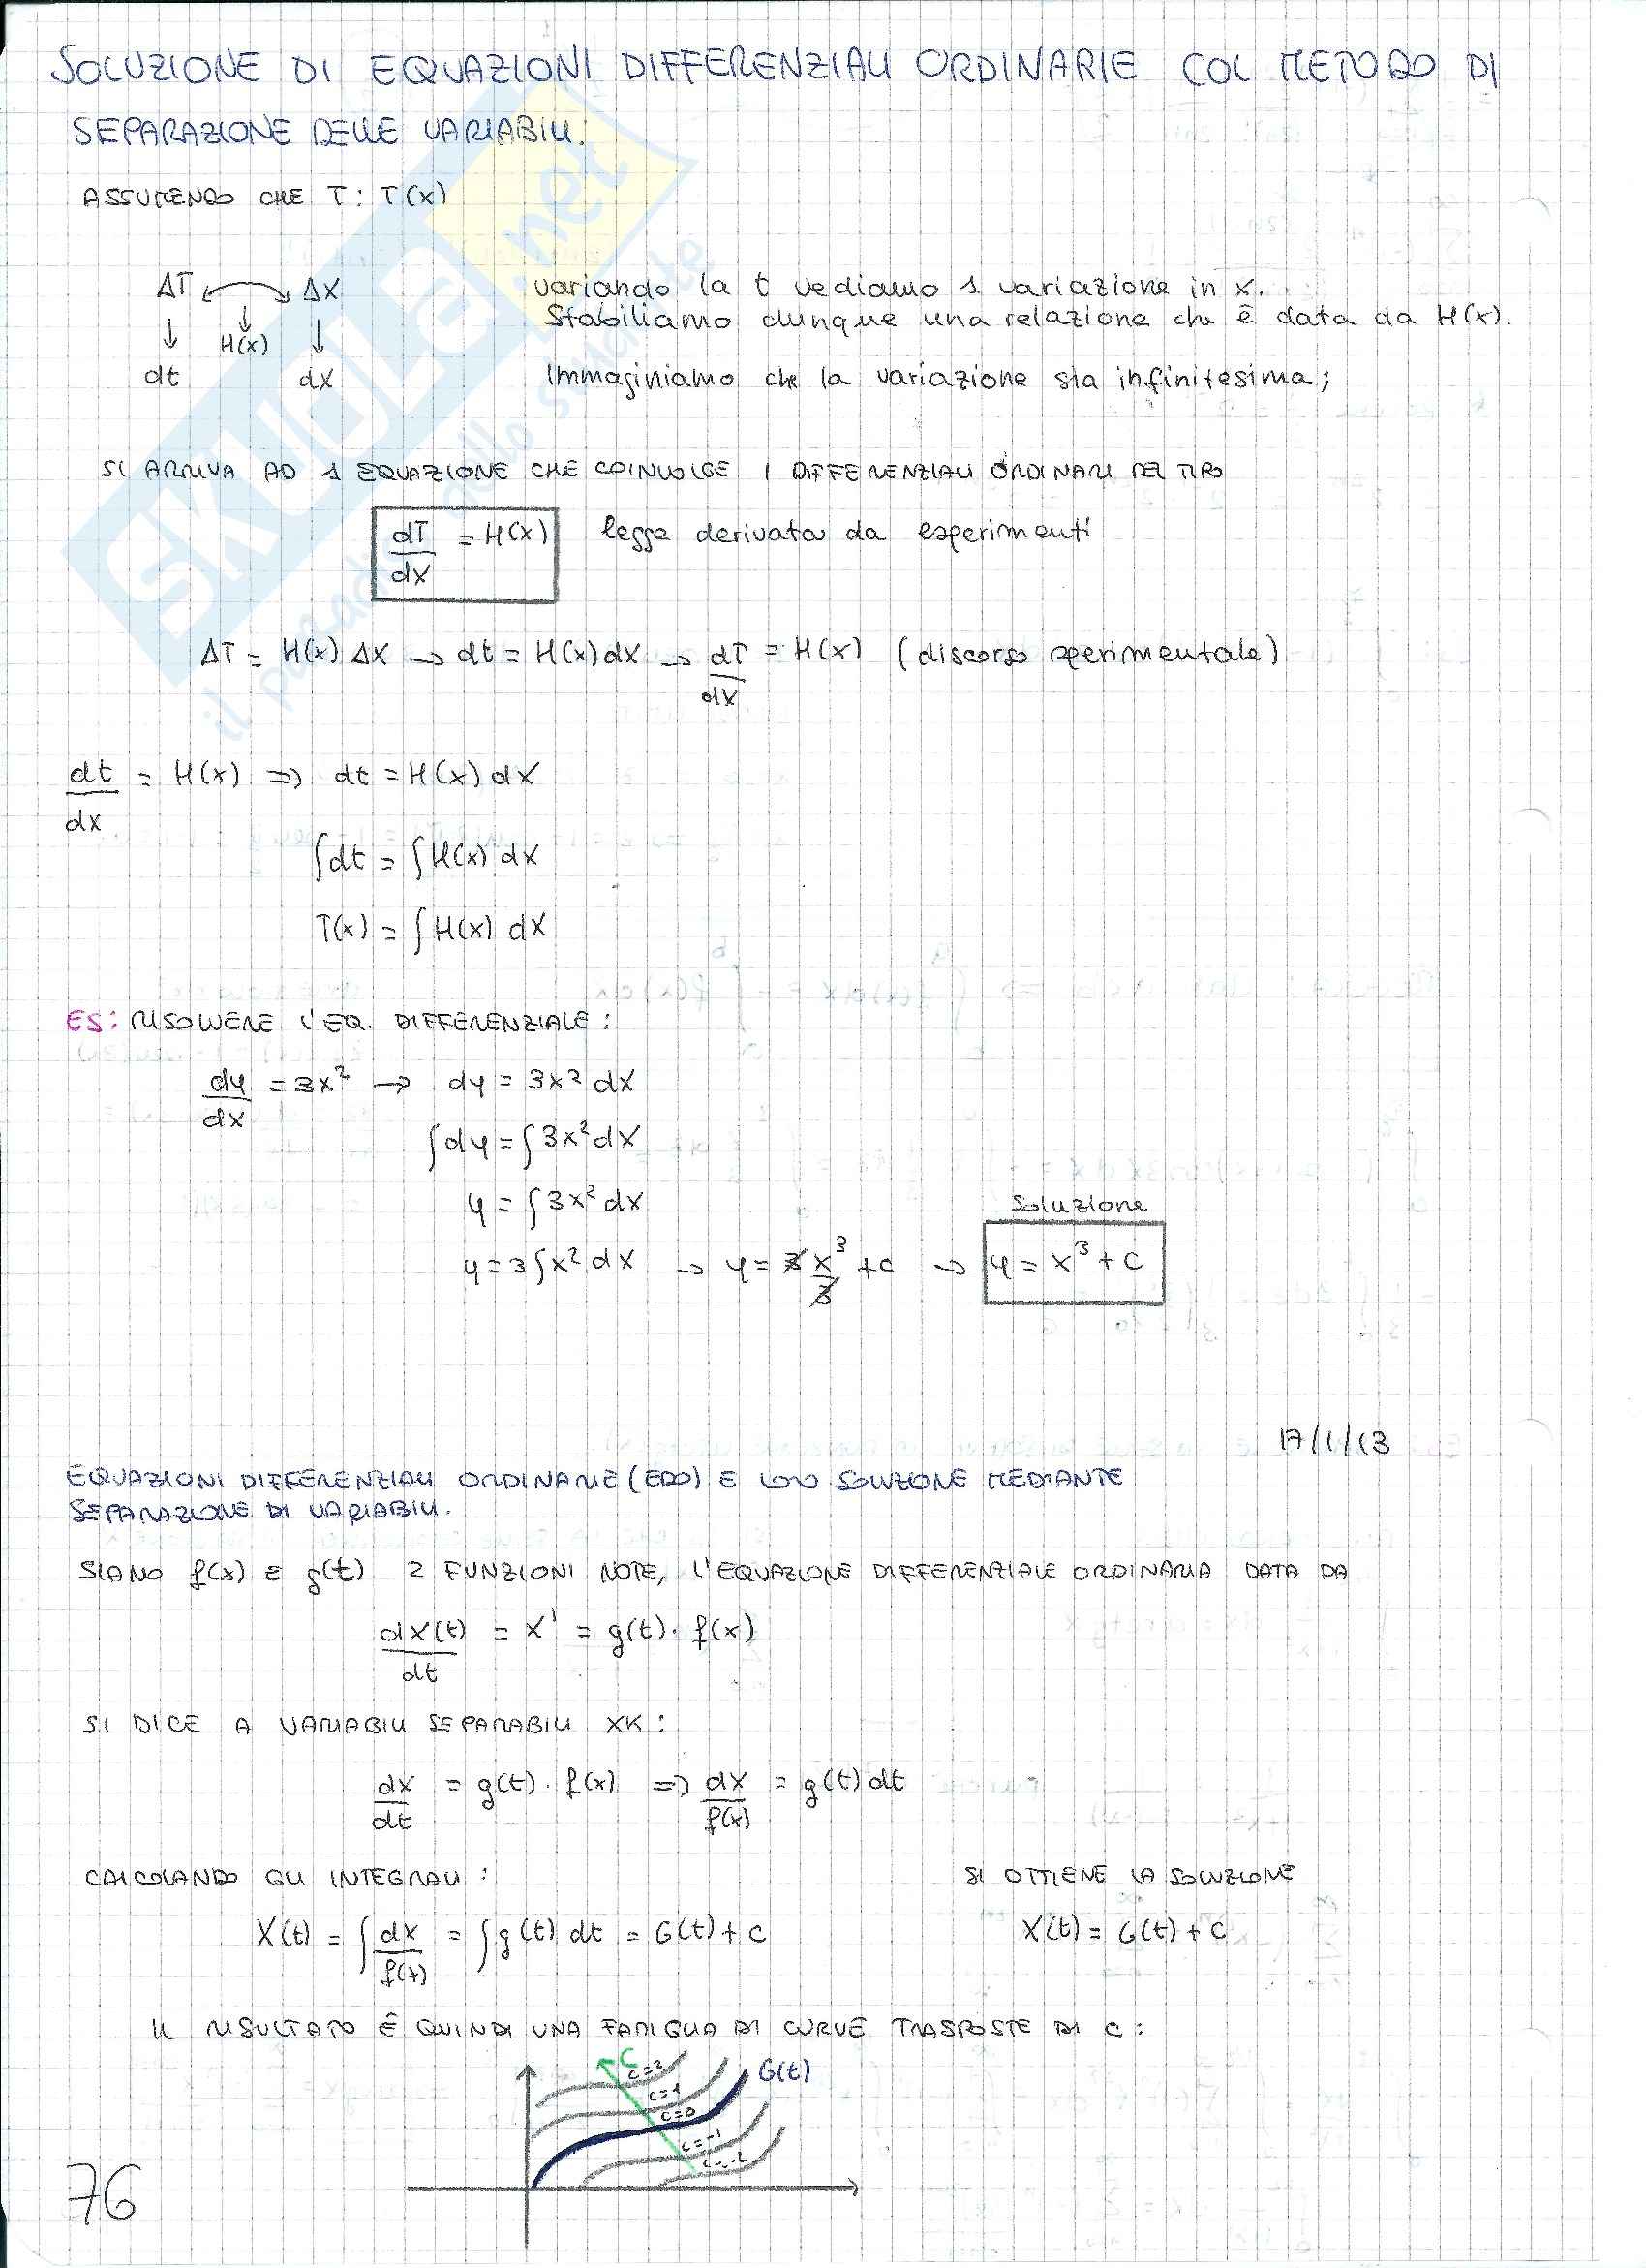 SOLUZIONE DI EQUAZIONI DIFFERENZIALI ORDINARIE COL METODO DI
SEPARAZIONE DELLE VARIABILI:
ASSUMENDO CHE T: T(x)
ΔT ΔX
H(x)
dt dX
variando la t vediamo 1 variazione in x.
Stabiliamo dunque una relazione che è data da H(x).
Immaginiamo che la variazione sia infinitesima;
SI ARRIVA AD 1 EQUAZIONE CHE COINVOLGE I DIFFERENZIALI ORDINARI DEL TIPO
dT/dX = H(x) legge derivata da esperimenti
ΔT = H(x) ΔX → dt = H(x) dX → dT/dX = H(x) (discorso sperimentale)
dt/dX = H(x) ⇒ dt = H(x) dX
∫dt = ∫H(x) dX
T(x) = ∫H(x) dX
ES: RISOLVERE L'EQ. DIFFERENZIALE:
dy/dX = 3x² → dy = 3x² dX
∫dy = ∫3x² dX
y = ∫3x² dX
Soluzione
y = 3∫x² dX → y = 3x³/3 + C → y = x³ + C
17/1/13
EQUAZIONI DIFFERENZIALI ORDINARIE (EDO) E LORO SOLUZIONE MEDIANTE
SEPARAZIONE DI VARIABILI.
SIANO f(x) E g(t) 2 FUNZIONI NOTE, L'EQUAZIONE DIFFERENZIALE ORDINARIA DATA DA
dX(t)/dt = X' = g(t)· f(x)
SI DICE A VARIABILI SEPARABILI XK:
dX/dt = g(t) · f(x) ⇒ dX/f(x) = g(t) dt
CALCOLANDO GLI INTEGRALI: SI OTTIENE LA SOLUZIONE
X(t) = ∫dX/f(x) = ∫g(t) dt = G(t) + C X(t) = G(t) + C
IL RISULTATO È QUINDI UNA FAMIGLIA DI CURVE TRASPOSTE DI C:
C
C=2
G(t)
C=1
C=0
C=-1
C=-2
76
SKUOLA.net